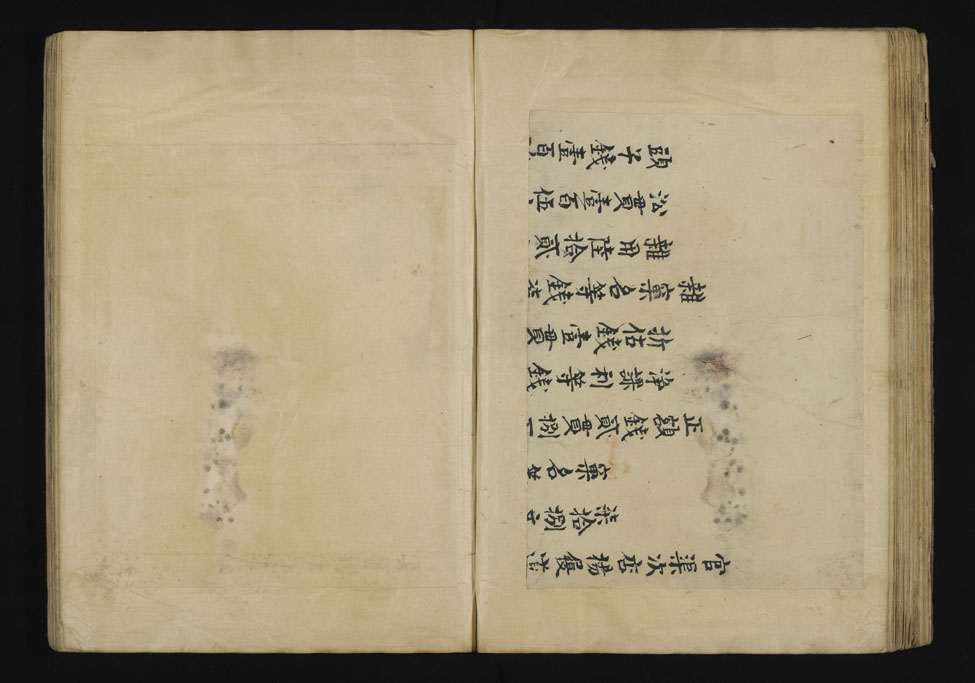 渠次店楊
柒拾捌
窠名並
正額錢貳貫捌
淨課利等錢
折估錢壹貫
雜窠名等錢
雜用陸拾貳
貫壹百伍
頭子錢壹百